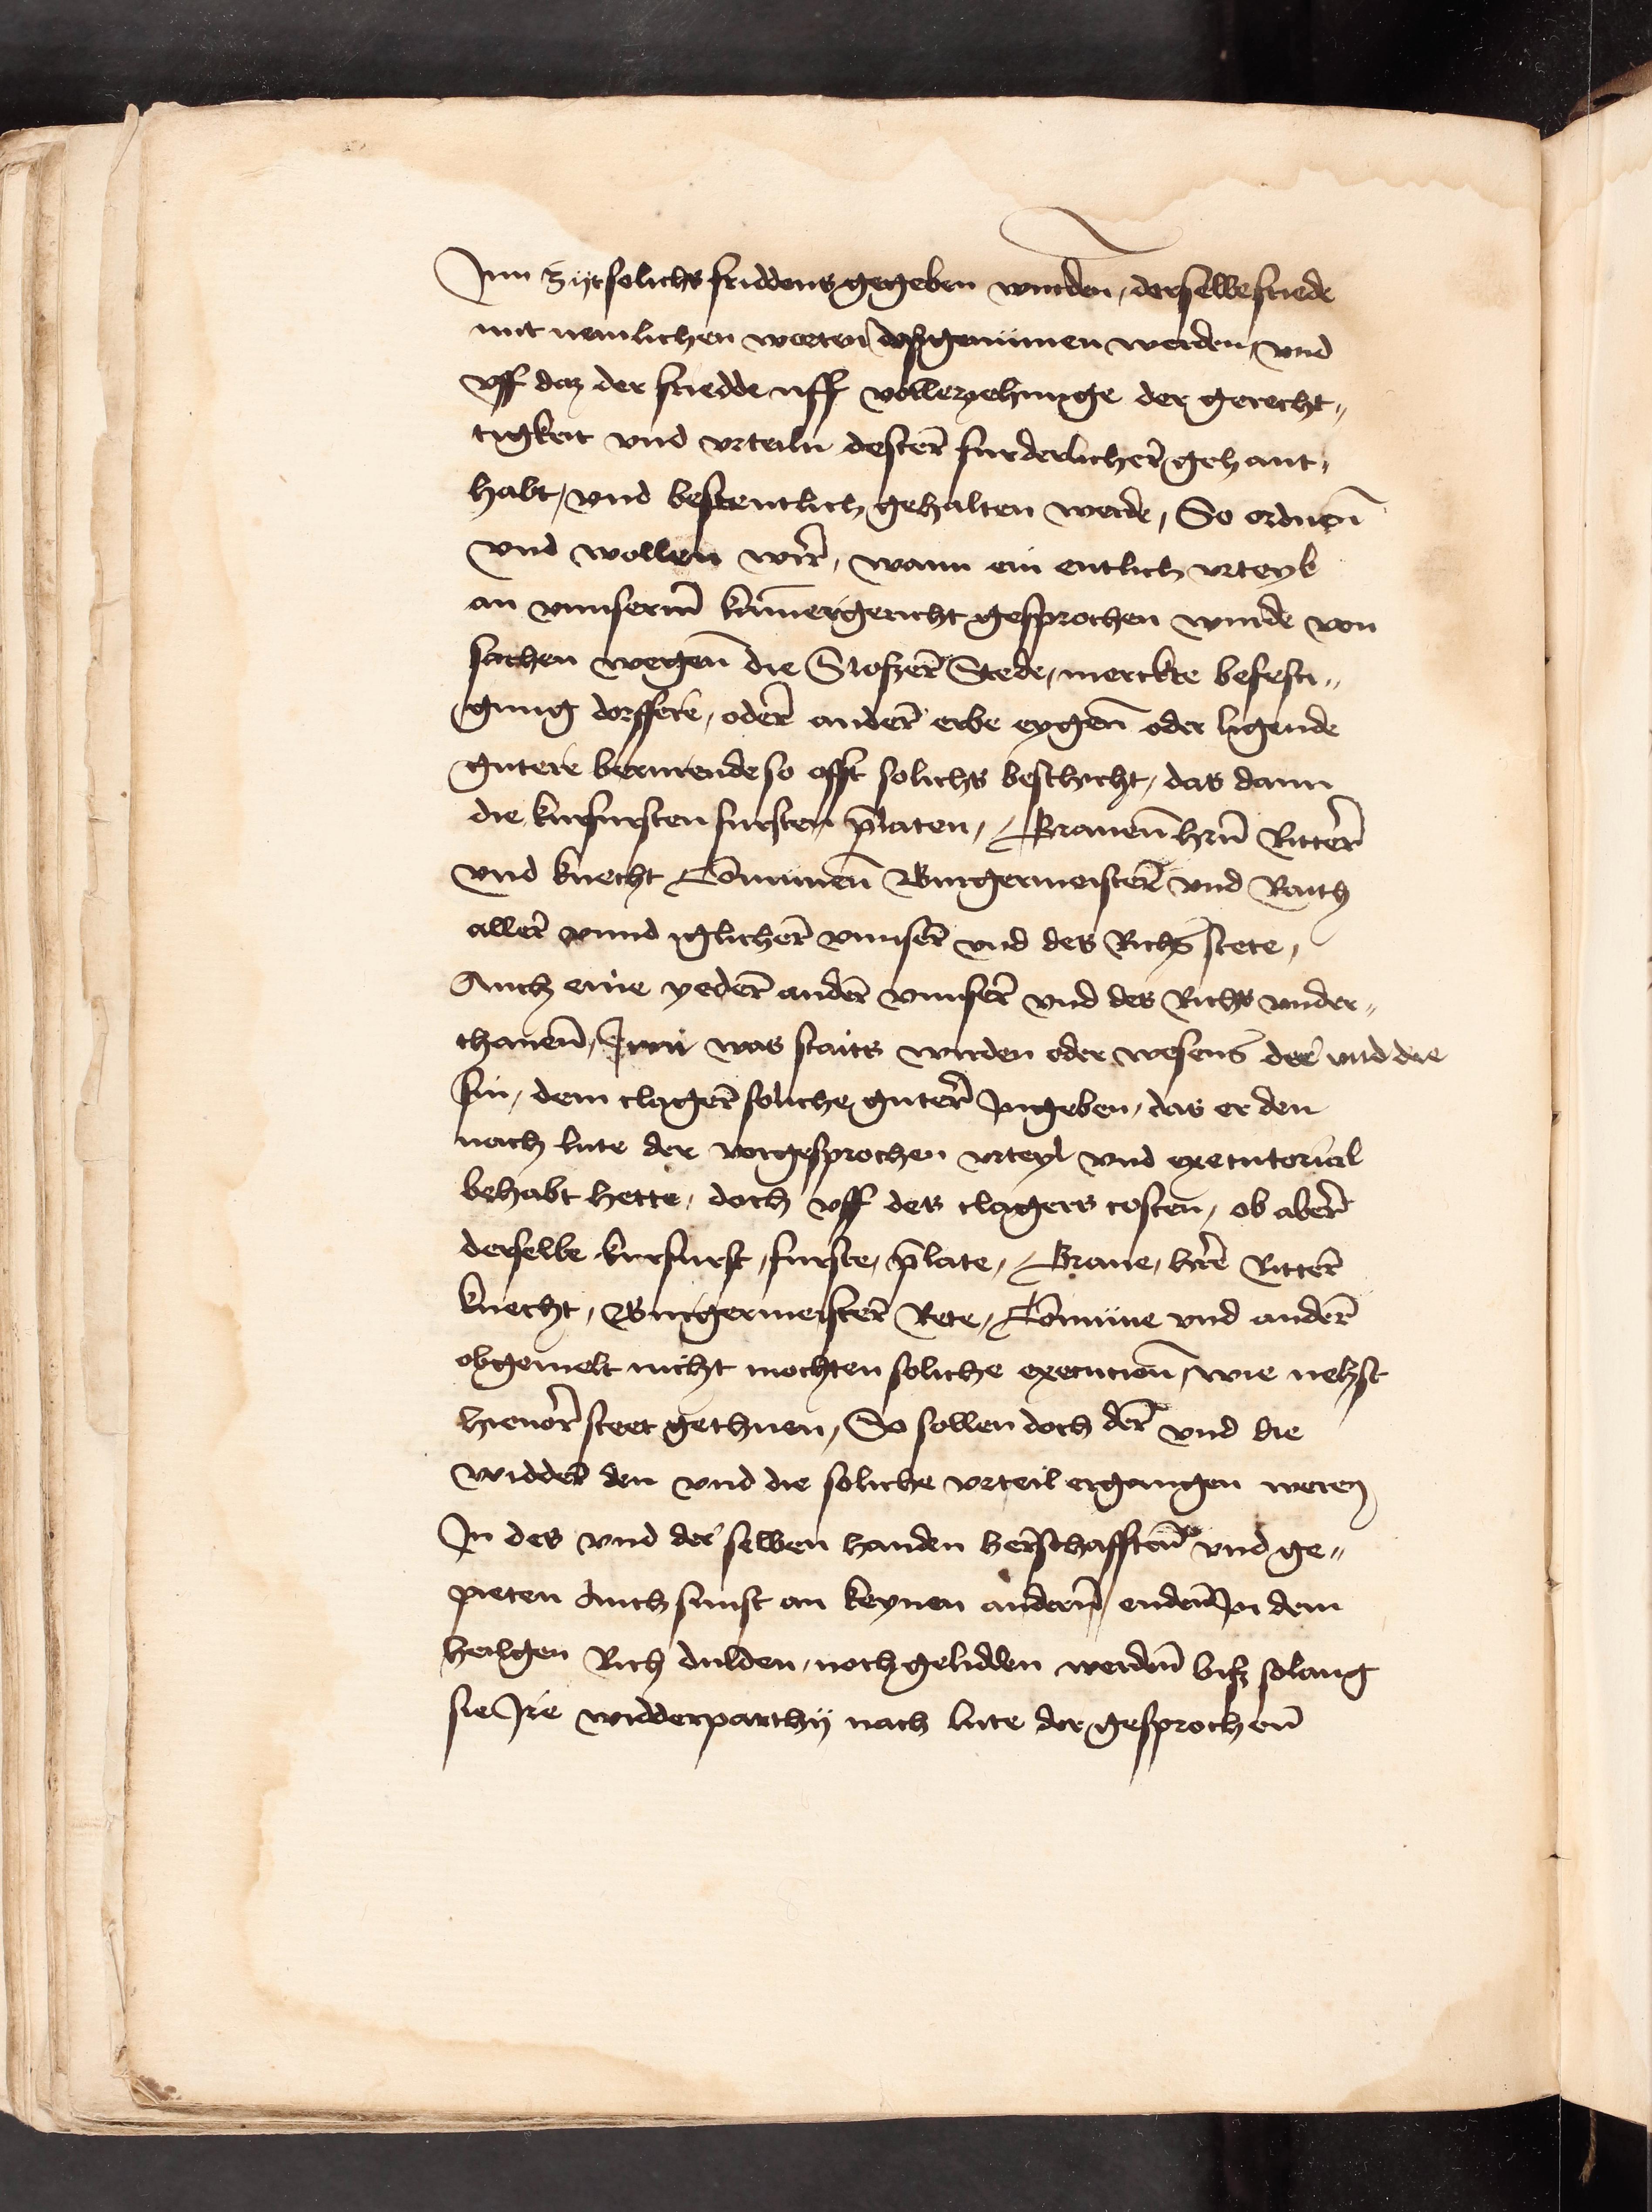 Inn Zyt solichs friddens gegeben wurden, derselbe friede
mit nemlichen worten vßgenümen werden, vnd
vff daz der friedde uff volletzyehunge der gerecht„
tigkeit vnd vrteiln desterr furderlicherr gehant,
habt, vnd bestentlich gehalten werde, So ordnen̄
vnd wollen wirr, wann ein entlich vrteyl
an vnnserm̄ kam̄ergericht gesprochen wurde von
sachen wegen̄ die Sloßerr Stede, merckte befesti„
gung dorffere, oderr anderr erbe eygen̄ oder ligende
gutere berurende so offt solichs beschicht, das dann
die kurfursten fursten p̄laten, Grauen̄ hrn̄ Ritterr
vnd knecht Com̄unen̄ Burgermeisterr vnd Raith
allerr vnnd iglicherr vnnserr vnd des Richs stete,
Auch eine yederr anderr vnnserr vnd des Richs vnder„
thanen̄, Inn was staits wirden oder wesens der vnd die
sin, dem clagerr soliche guterr Ingeben, das er den
nach lute der vorgesprochen vrteyl vnd executorial
behabt hette, doch vff des clagers costen, ob aberr
derselbe kurfurst, furste, p̄late, Graue, hrē Ritterr
knecht, Burgermeisterr Rete, Com̄üne vnd anderr
obgemelt nicht mochten soliche execution̄, wie nehst
hieuorr steet gethuen, So sollen doch derr vnd die
widderr den vnd die soliche vrteil ergangen weren
In des vnd der selben handen herrschafften̄ vnd ge„
pieten Auch sunst an keynen andern̄ enden̄ In dem
heilgen Rich dulden, noch gelidden werden̄ biß solang
sie Ire widderparthy nach lute der gesprochen̄